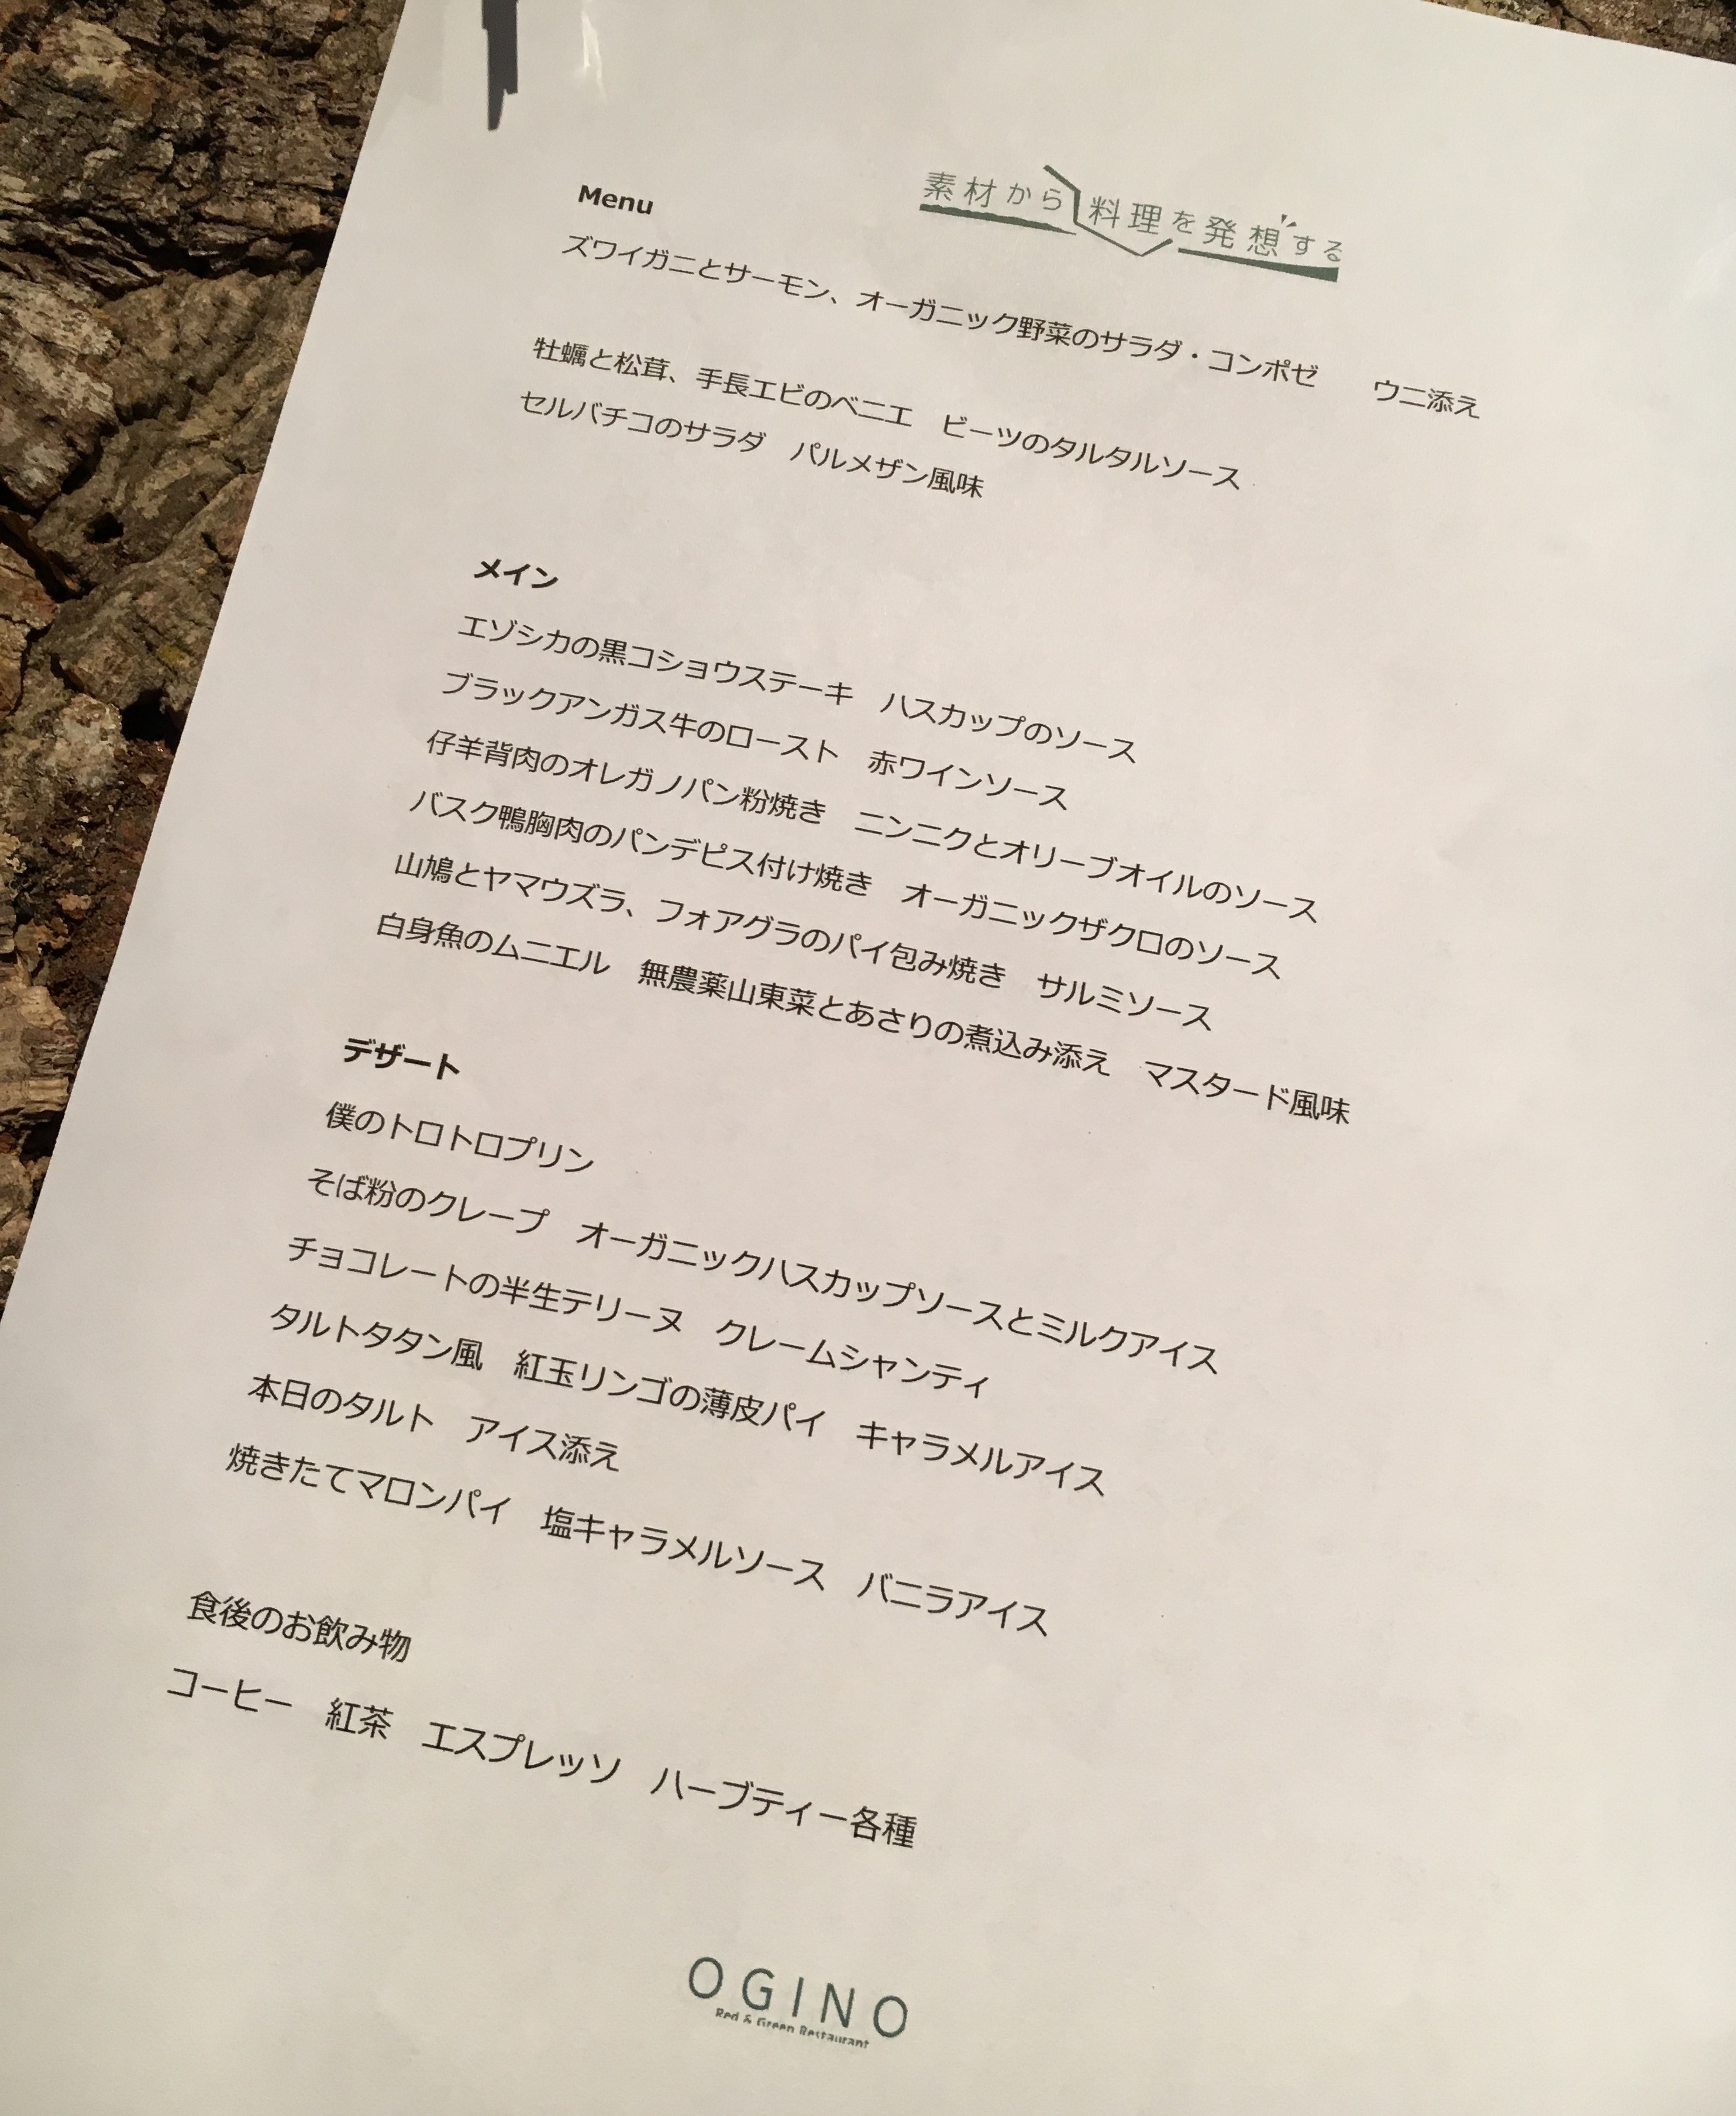 素材から料理を発想する
Menu
ズワイガニとサーモン、オーガニック野菜のサラダ・コンポゼ　ウニ添え
牡蠣と松茸、手長エビのベニエ　ビーツのタルタルソース
セルバチコのサラダ　パルメザン風味
メイン
エゾシカの黒コショウステーキ　ハスカップのソース
ブラックアンガス牛のロースト　赤ワインソース
仔羊背肉のオレガノパン粉焼き　ニンニクとオリーブオイルのソース
バスク鴨胸肉のパンデピス付け焼き　オーガニックザクロのソース
山鳩とヤマウズラ、フォアグラのパイ包み焼き　サルミソース
白身魚のムニエル　無農薬山東菜とあさりの煮込み添え　マスタード風味
デザート
僕のトロトロプリン
そば粉のクレープ　オーガニックハスカップソースとミルクアイス
チョコレートの半生テリーヌ　クレームシャンティ
タルトタタン風　紅玉リンゴの薄皮パイ　キャラメルアイス
本日のタルト　アイス添え
焼きたてマロンパイ　塩キャラメルソース　バニラアイス
食後のお飲み物
コーヒー　紅茶　エスプレッソ　ハーブティー各種
OGINO
Red & Green Restaurant